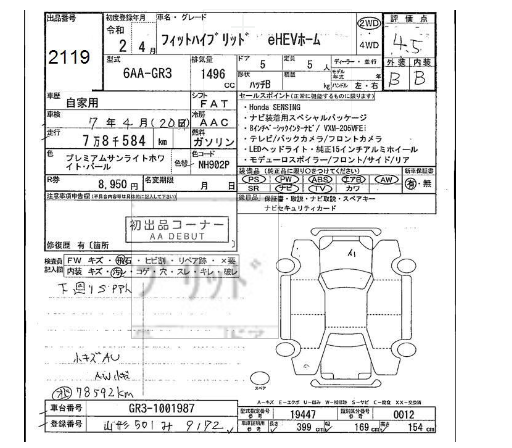 出品番号
2119
初度登録年月
令和
2年4月
車名・グレード
フィットハイブリッド eHEVホーム
2WD
4WD
評価点
4.5
型式
6AA-GR3
排気量
1496
cc
ドア
5
形状
ハッチB
定員
5人
積載量
kg
ディーラー・並行
モデル年式
年
ハンドル 左・右
外装 内装
B B
車歴
自家用
シフト
FAT
車検
7年4月(20日)
冷房
AAC
走行
7万8千584km
燃料
ガソリン
色
プレミアムサンライトホワイト・パール
色替
色コード
NH902P
R券
8,950円
名変期限
月 日
セールスポイント(正常に機能するものに限ります)
・Honda SENSING
・ナビ装着用スペシャルパッケージ
・8インチベーシックインターナビ/ VXM-205VFEi
・テレビ/バックカメラ/フロントカメラ
・LEDヘッドライト・純正15インチアルミホイール
・モデューロスポイラー/フロント/サイド/リア
装備品(純正品に限り〇をつけてください)
PS PW ABS エアB AW
SR ナビ TV カワ
新車保証書
有・無
保証書・取説・ナビ取説・スペアキー
ナビセキュリティカード
注意事項申告欄
初出品コーナー
AA DEBUT
修復歴 有(箇所
検査員記入欄
FW キズ・飛石・ヒビ割・リペア跡・×要
内装 キズ・汚レ・コゲ・穴・スレ・キレ・破レ
ブリッド
小キズAU
AW小キズ
78592km
スペア
A-キズ E-エクボ U-凹み W-補修跡 S-サビ C-腐食 XX-交換済
車台番号
GR3-1001987
登録番号
501 み 9172
型式指定番号
19447
類別区分番号
0012
長さ
399cm
幅
169cm
高さ
154cm